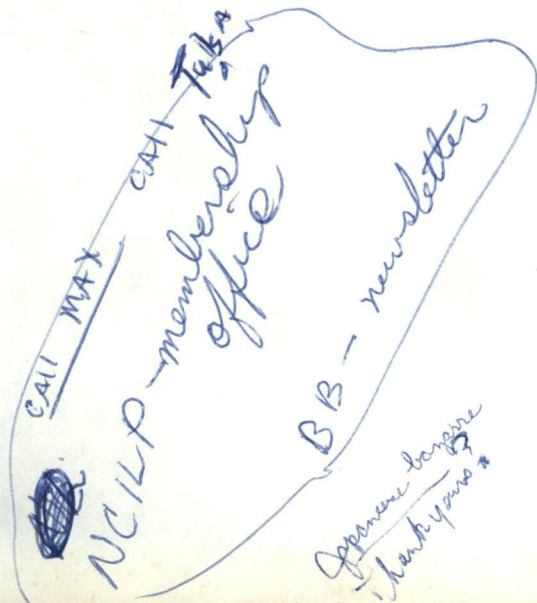 CAll MAX
CAll Taka
NCILP - membership
office
BB - newsletter
Japanese bazarre
Thank yous